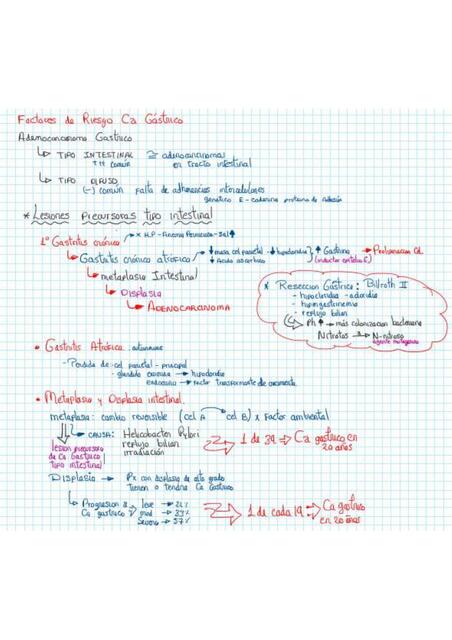 Factores de Riesgo Ca Gástrico
Adenocarcinoma Gastrico
TIPO INTESTINAL ≅ adenocarcinomas
común en tracto intestinal
TIPO DIFUSO
(-) común Falta de adherencias intercelulares
Genético E-cadherina proteína de Adhesión
* Lesiones Precursoras tipo intestinal
1° Gastritis crónica → x H.P - Anemia Perniciosa - Sal ↑
Gastritis crónica atrófica → ↓ masa cel parietal - ↓ hipoclorhidria ↑ Gastrina → Proliferacion Cel.
↓ Acido ascorbico
metaplasia Intestinal
Displasia
ADENOCARCINOMA
* Reseccion Gástrica: Billroth II
- hipocloridia - acloridia
- hipogastrinemia
- reflujo biliar
Ph ↑ → más colonizacion bacteriana
Nitratos → N-nitroso
agente mutageno
• Gastritis Atrófica: autoinmune
- Perdida de cel parietal - principal
- glandula exocrina → hipocloridia
endocrina → Factor transformante de crecimiento
• Metaplasia y Displasia intestinal.
metaplasia: cambio reversible (cel A → cel B) x Factor ambiental
CAUSA: Helicobacter Pylori
reflujo biliar
irradiación
1 de 39 ⇒ Ca gastrico en
20 años
lesion precursora
de Ca Gastrico
tipo intestinal
Displasia → Px con displasia de alto grado
Tienen o tendrá Ca Gastrico
Progresion a leve → 21%
Ca gastrico mod → 33%
Severo → 57%
1 de cada 19 → Ca gastrico
en 20 años